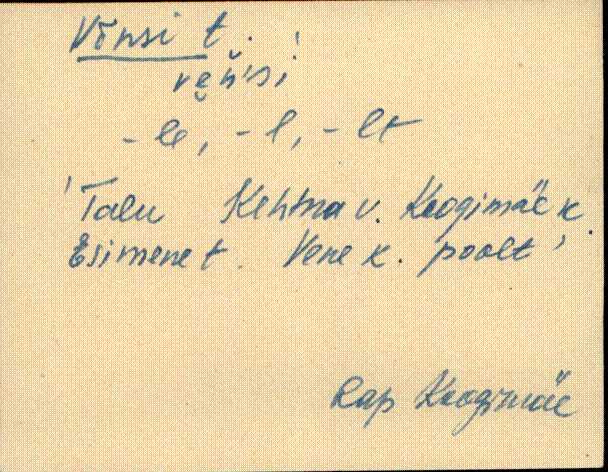 Võnsi t.
vẹňsi
-le, -l, -lt
'Talu Kehtna v. Koogimäe k.
Esimene t. Vene k. poolt'
Rap Koogimäe